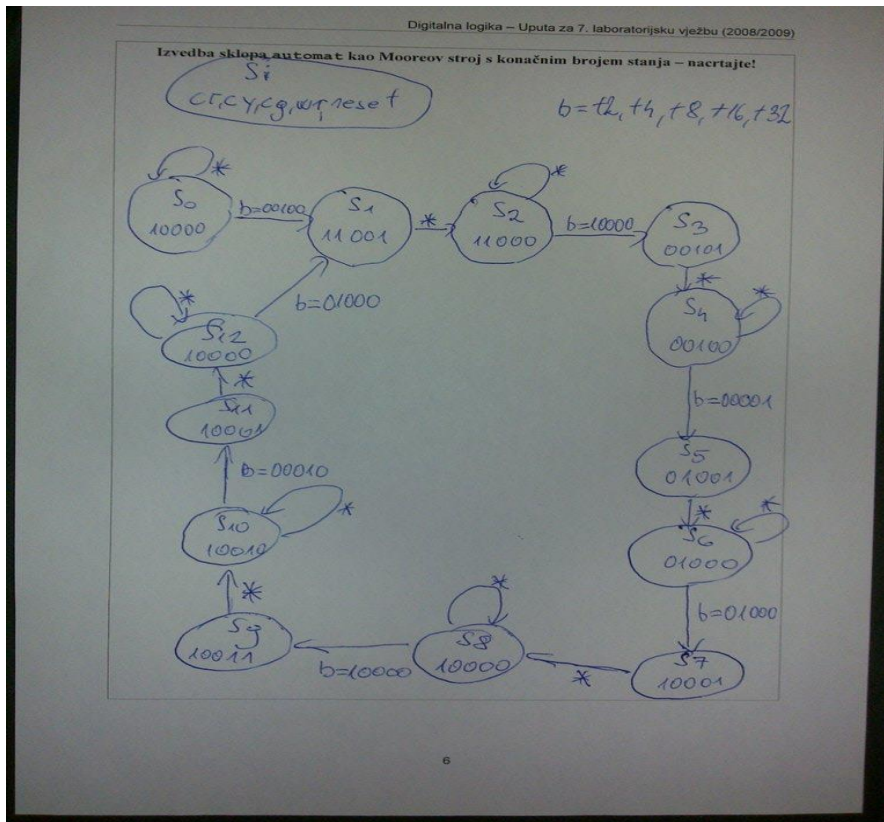 Digitalna logika – Uputa za 7. laboratorijsku vježbu (2008/2009)
Izvedba sklopa automat kao Mooreov stroj s konačnim brojem stanja – nacrtajte!
Si
cr, cy, cg, wr, reset
b=t2, t4, t8, t16, t32
*
S0
10000
b=00100
S1
11001
*
*
S2
11000
b=10000
S3
00101
*
S4
00100
*
b=00001
S5
01001
*
S6
01000
*
b=01000
S7
10001
*
*
S8
10000
b=10000
S9
10011
*
S10
10010
*
b=00010
S11
10001
*
*
S12
10000
b=01000
6